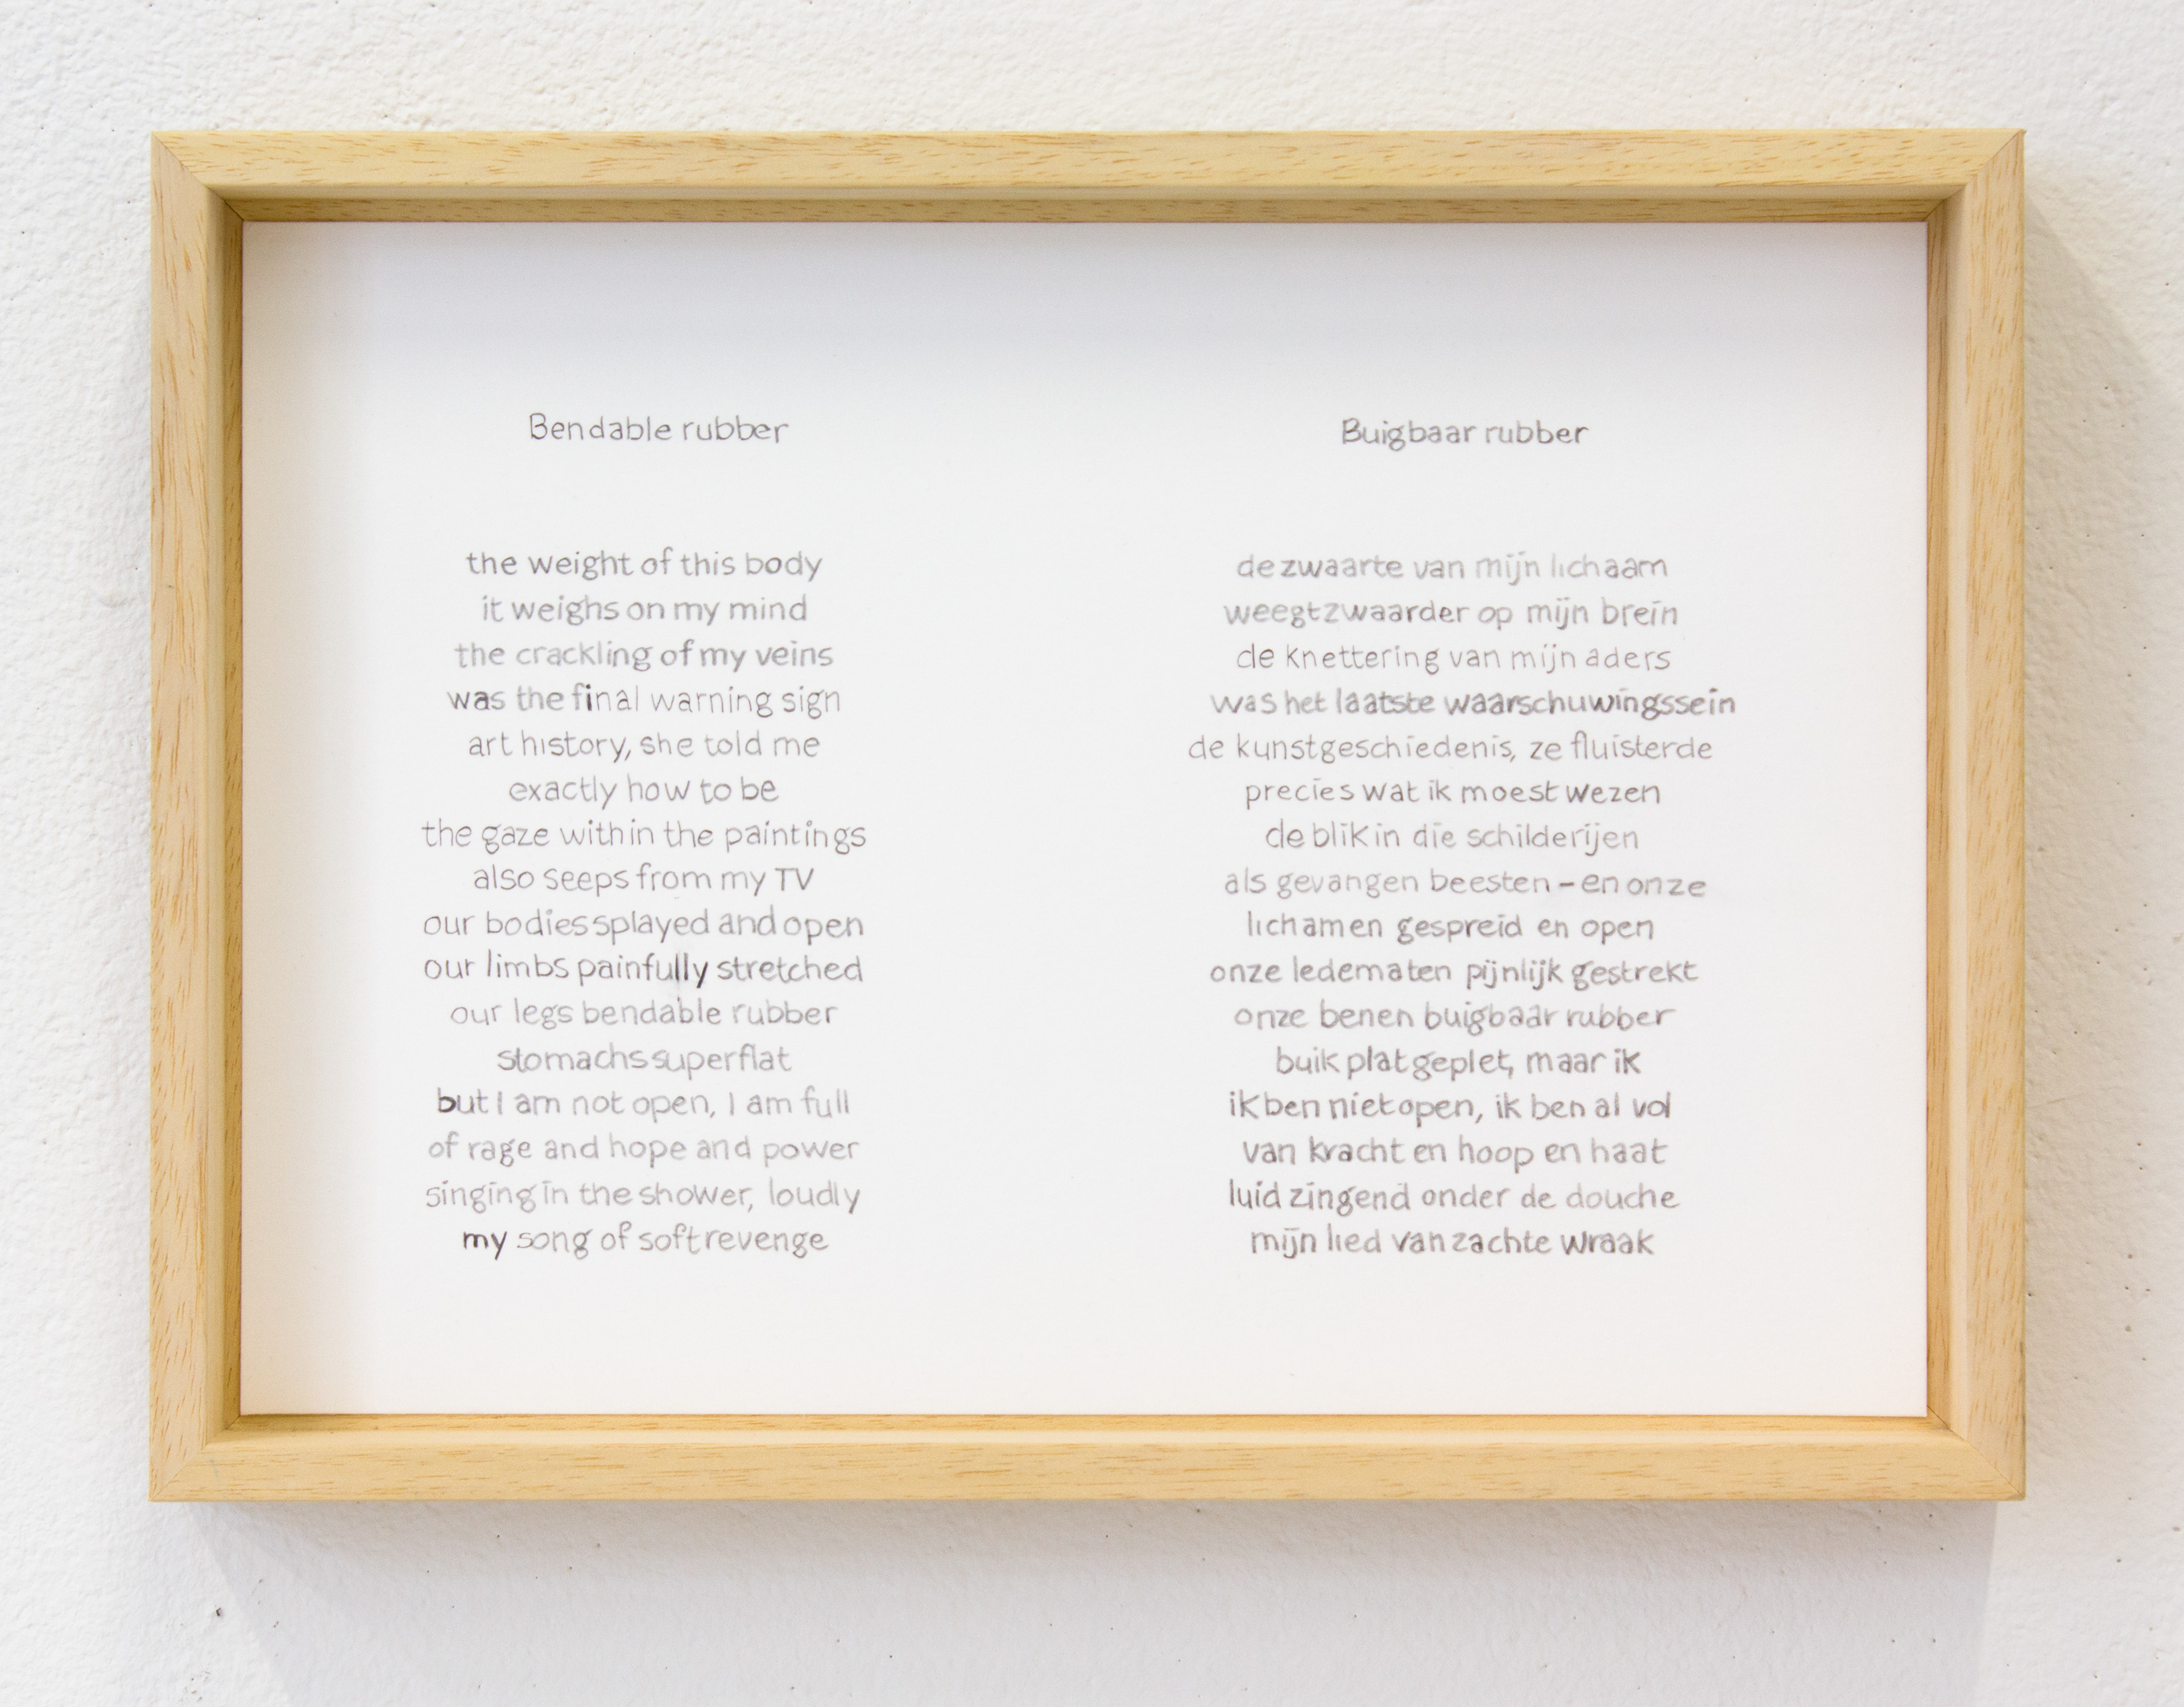 Bendable rubber
the weight of this body
it weighs on my mind
the crackling of my veins
was the final warning sign
art history, she told me
exactly how to be
the gaze within the paintings
also seeps from my TV
our bodies splayed and open
our limbs painfully stretched
our legs bendable rubber
stomachs superflat
but I am not open, I am full
of rage and hope and power
singing in the shower, loudly
my song of soft revenge
Buigbaar rubber
de zwaarte van mijn lichaam
weegt zwaarder op mijn brein
de knettering van mijn aders
was het laatste waarschuwingssein
de kunstgeschiedenis, ze fluisterde
precies wat ik moest wezen
de blik in die schilderijen
als gevangen beesten – en onze
lichamen gespreid en open
onze ledematen pijnlijk gestrekt
onze benen buigbaar rubber
buik plat geplet, maar ik
ik ben niet open, ik ben al vol
van kracht en hoop en haat
luid zingend onder de douche
mijn lied van zachte wraak